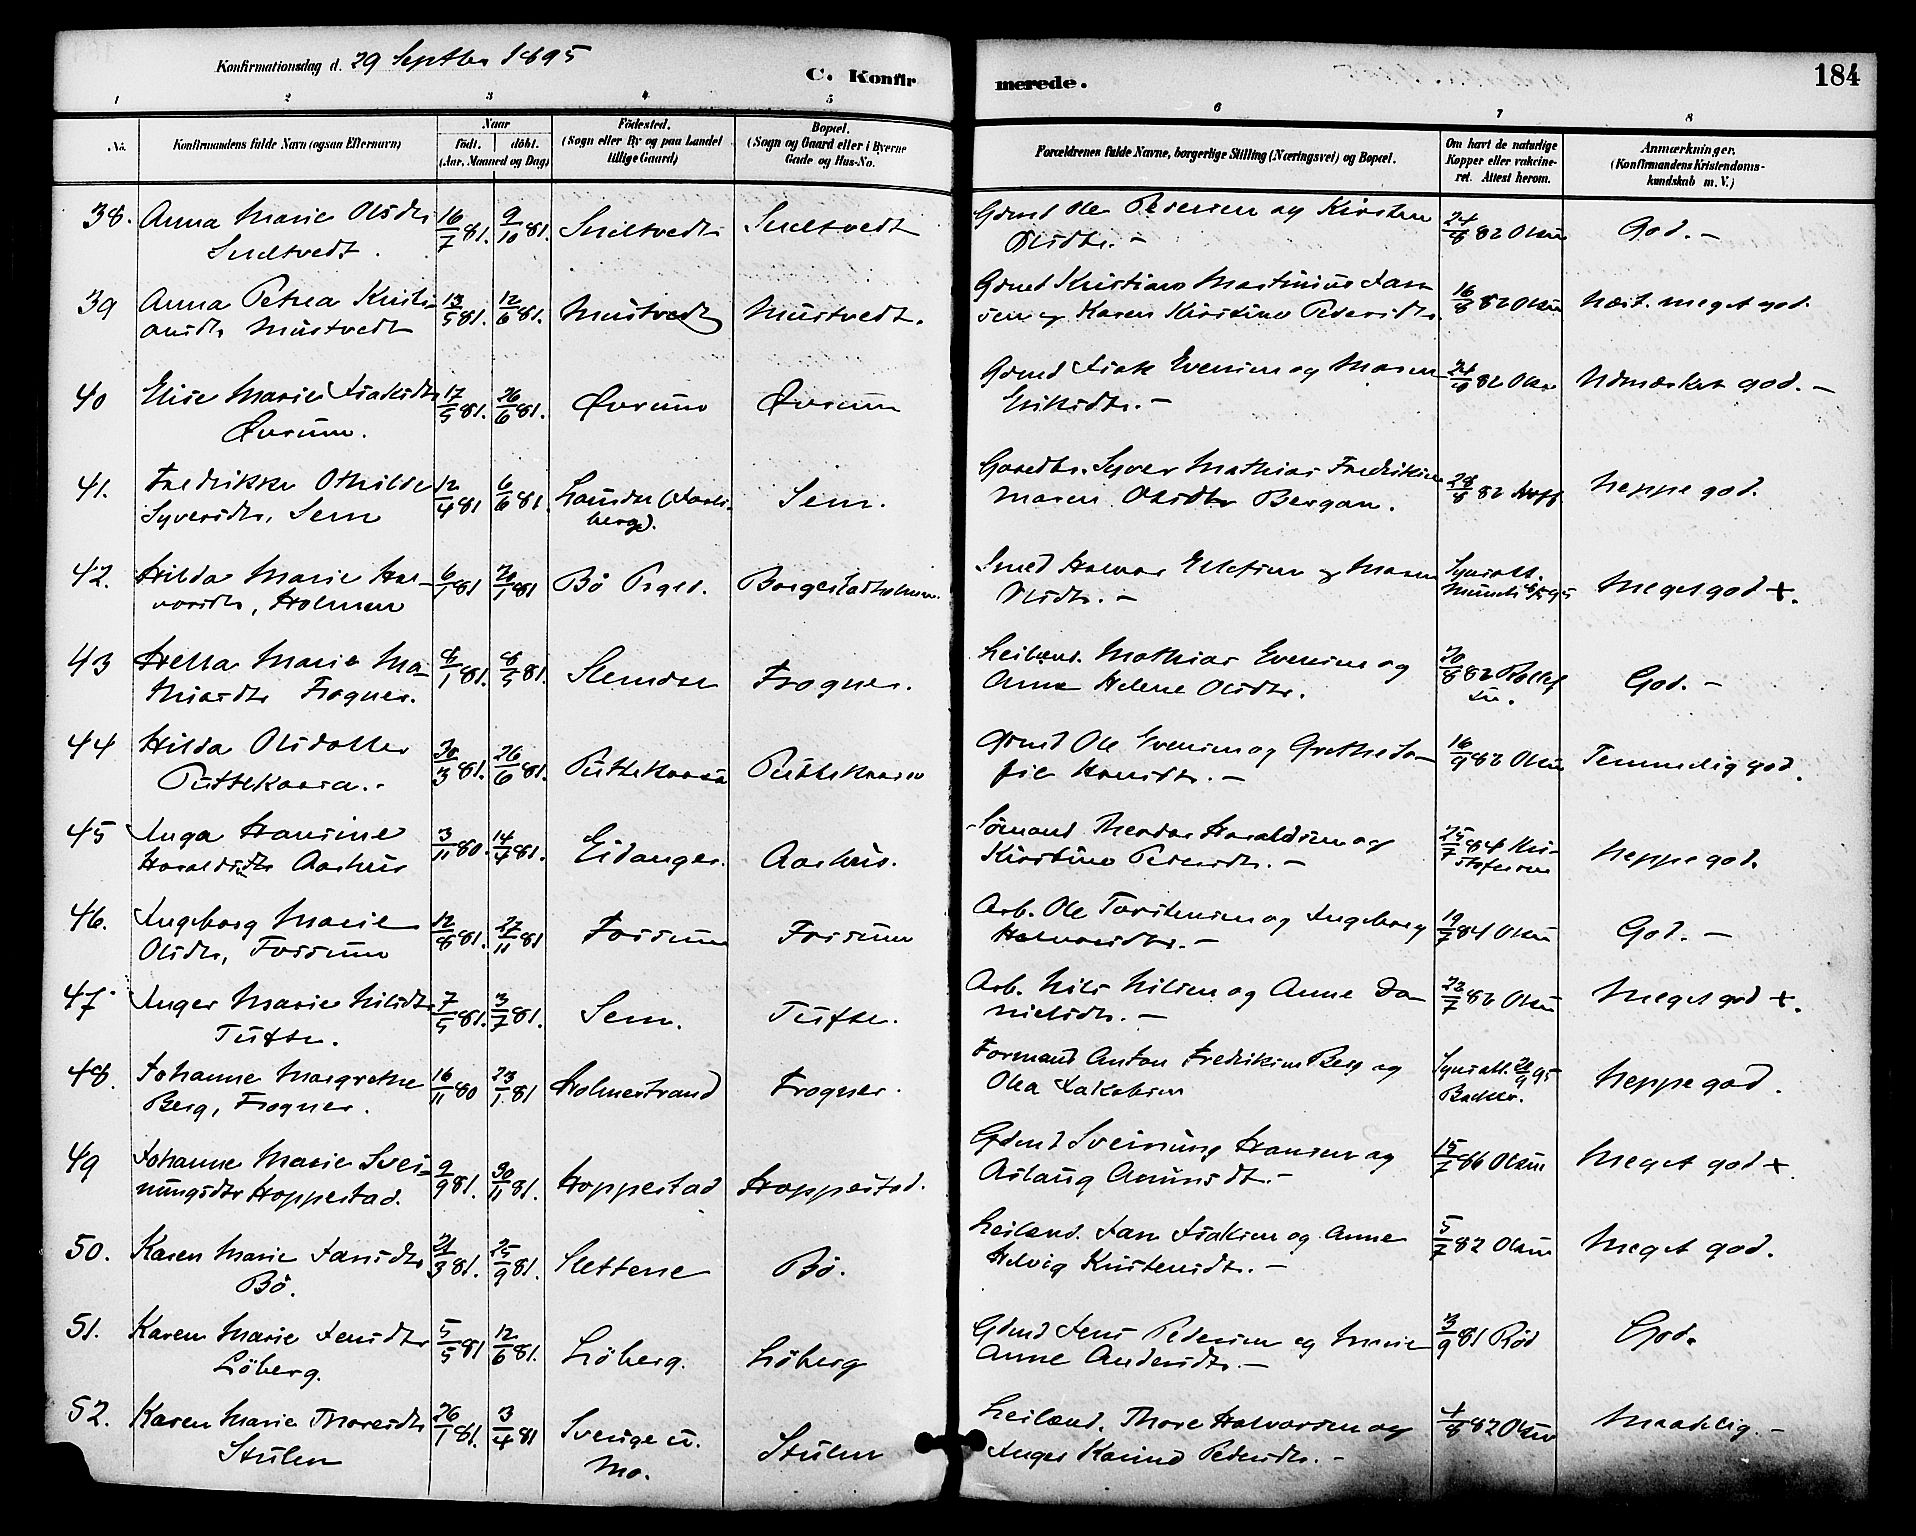 Konfirmationsdag d. 29 Septbr 1895
C. Konfir merede. 184
1 2 3 4 5 6 7 8
No. Konfirmandens fulde Navn (ogsaa Efternavn) Naar Födested. Bopæl. Forældrenes fulde Navne, borgerlige Stilling (Næringsvei) og Bopæl. Om havt de naturlige Anmærkninger.
födt. döbt. (Sogn eller By og paa Landet (Sogn og Gaard eller i Byerne Kopper eller vakcine- (Konfirmandens Kristendoms-
(Aar, Maaned og Dag) tillige Gaard) Gade og Hus-No. ret. Attest herom. kundskab m. V.)
38. Anna Marie Olsdtr 16/7 81. 9/10 81. Sneltvedt Sneltvedt Grmd Ole Pedersen og Kirsten 24/8 82 Olsen God. –
Sneltvedt. Olsdtr. –
39 Anna Petrea Kristi- 13/5 81. 12/6 81. Mustvedt Mustvedt. Grmd Kristian Martinius Jan- 16/8 82 Olsen Næst. meget god.
ansdtr Mustvedt sen og Karen Kirstine Pedersdtr.
40 Elise Marie Isaksdtr 17/5 81. 26/6 81. Øvrum Øvrum Grmd Isak Evensen og Maren 24/9 82 Olsen Udmærket god. –
Øvrum. Eriksdtr. –
41. Fredrikke Othilde 12/4 81 6/6 81. Sem. Gaardbr. Syver Mathias Fredriksen 28/8 82 Meppe god.
Syversdtr, Sem berg). Maren Olsdtr Bergan.
42. Hilda Marie Hal- 6/1 81 Bö Borgestadholmen. Smed Halvor Ellefsen og Maren Meget god +.
vorsdtr, Holmen Olsdtr. –
43 Hella Marie Ma- 8/1 81. 8/5 81. Slemdal Frogner. Leilænd. Mathias Evensen og 20/8 82 God. –
thiasdtr Frogner. Anne Helene Olsdtr.
44 Hilda Olsdatter 30/3 81. 26/6 81. Puttekaasa Puttekaasa Grmd Ole Evensen og Grethe So- 16/9 82 Olsen Temmelig god.
Puttekaasa. fie Hansdtr. –
45 Inga Hansine 3/11 80. 14/4 81. Eidanger. Aarhus. Sömand Theodor Haraldsen og 25/7 84 Kri- Neppe god.
Haraldsdtr Aarhus Kirstine Pedersdtr. – stofersen
46. Ingeborg Marie 12/8 81. 27/11 81 Fossum Fossum Arb. Ole Torstensen og Ingeborg 19/7 84 Olsen God. –
Olsdtr, Fossum Halvorsdtr. –
47. Inger Marie Nilsdtr 7/5 81. 3/7 81. Sem. Tufte. Arb. Nils Nilsen og Anne Da- 22/7 82 Olsen Meget god +.
Tufte. nielsdtr. –
48. Johanne Margrethe 16/11 80 23/1 81 Holmestrand Frogner. Formand Anton Fredriksen Berg og Neppe god.
Berg, Frogner. Olea Jakobsen
49 Johanne Marie Svei- 9/9 81. 30/11 81. Hoppestad Hoppestad. Grmd Sveinung Hansen og 15/7 86 Olsen Meget god +.
nungsdtr Hoppestad. Aslaug Amundsdtr. –
50. Karen Marie Jansdtr 21/3 81. 25/9 81. Slettene Bö. Leilænd. Jan Isaksen og Anne 5/7 82 Olsen Meget god.
Bö. Helvig Kristensdtr. –
51. Karen Marie Jensdtr 5/5 81 12/6 81. Löberg. Löberg Grmd Jens Pedersen og Marie 3/9 81 Röd God.
Löberg. Anne Andersdtr. –
52. Karen Marie Thoresdtr 26/1 81. 3/4 81 Sverige u. Stulen Leilænd. Thore Halvorsen og 4/8 82 Olsen Maadelig. –
Stulen Mo. Inger Karine Pedersdtr. –